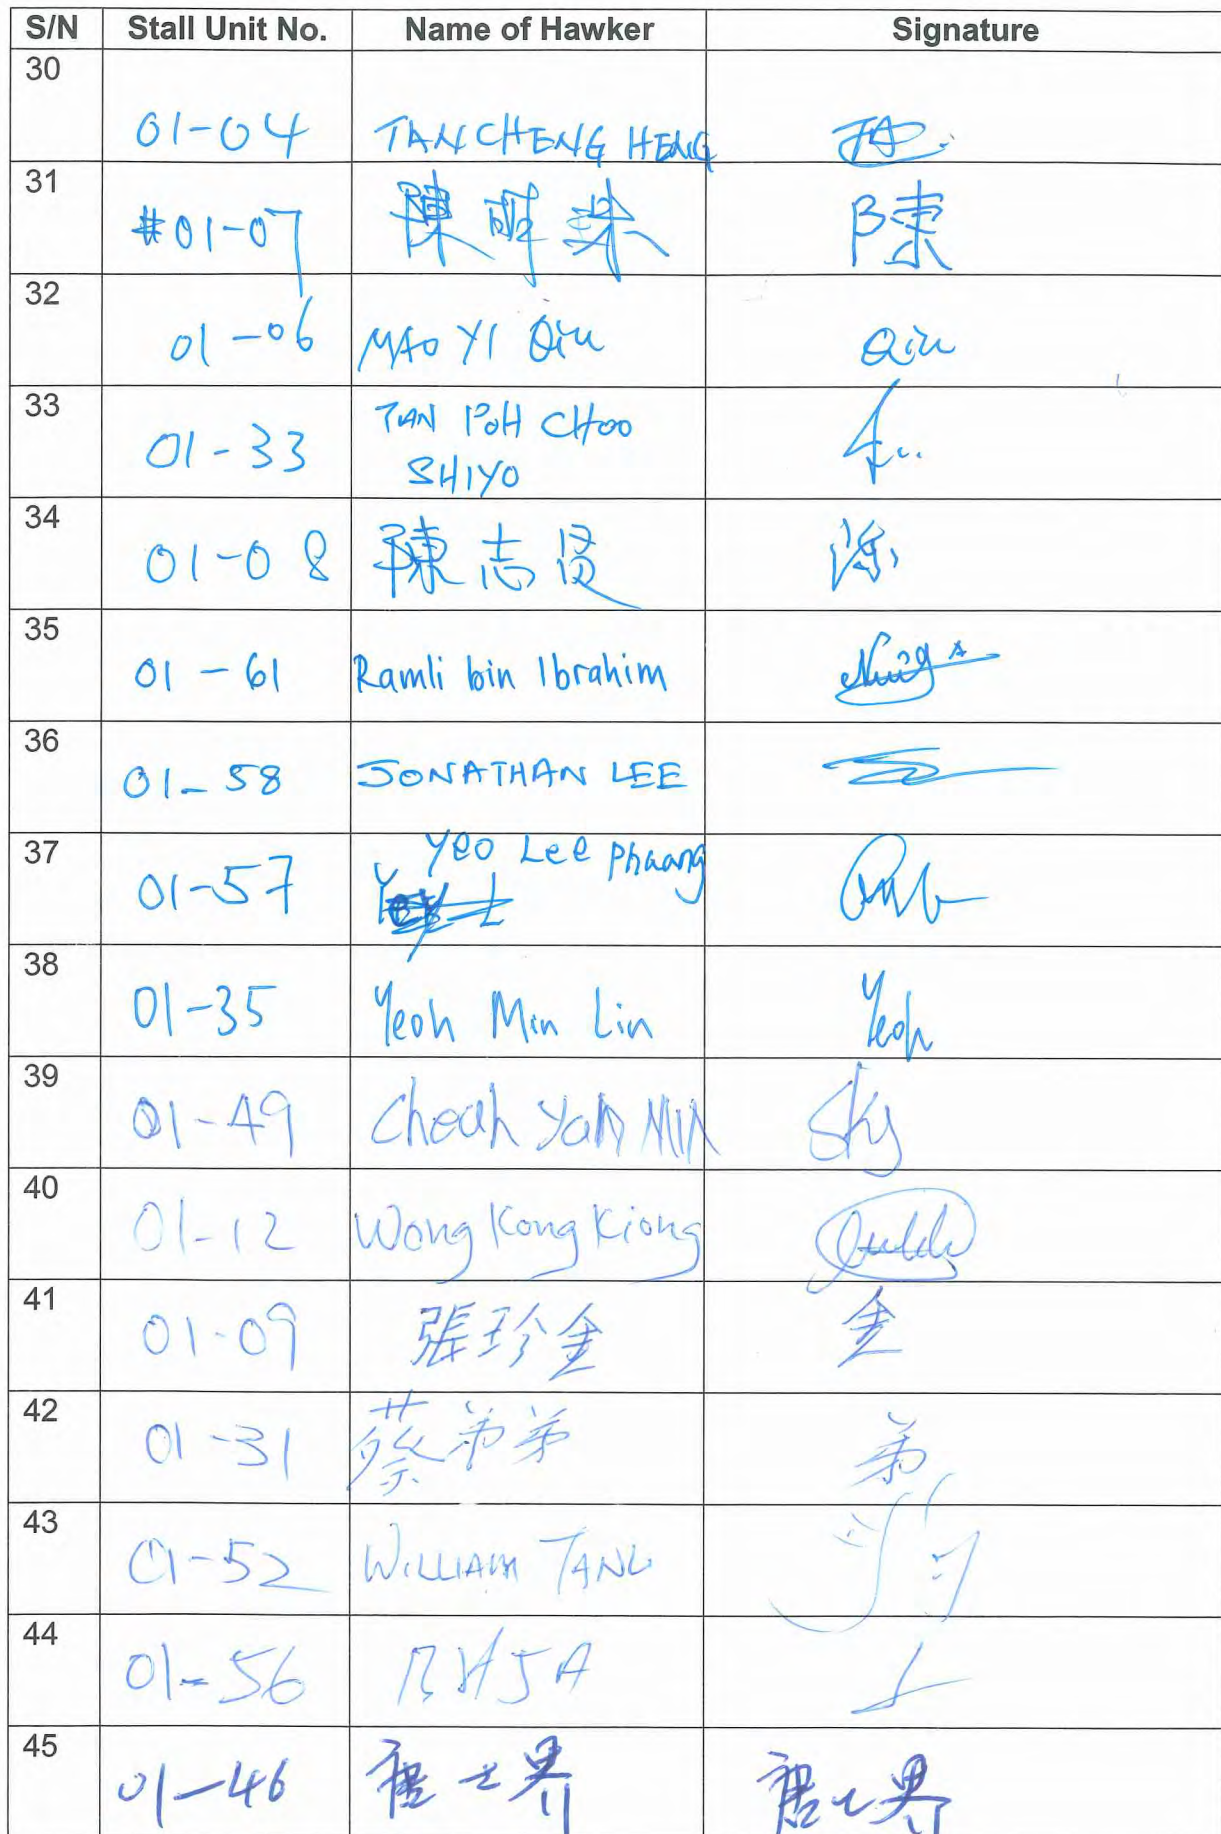 S/N Stall Unit No. Name of Hawker Signature
30 01-04 TAN CHENG HENG
31 #01-07 陳 陳
32 01-06 MAO YI Qiu Qiu
33 01-33 TAN POH CHOO
SHIYO
34 01-08 陳志贤
35 01-61 Ramli bin Ibrahim
36 01-58 JONATHAN LEE
37 01-57 Yeo Lee Phaang
38 01-35 Yeoh Min Lin Yeoh
39 01-49 Cheah Yan MIN Sky
40 01-12 Wong Kong Kiong
41 01-09 張珍金 金
42 01-31 蔡弟弟 弟
43 01-52 WILLIAM
44 01-56
45 01-46 世界